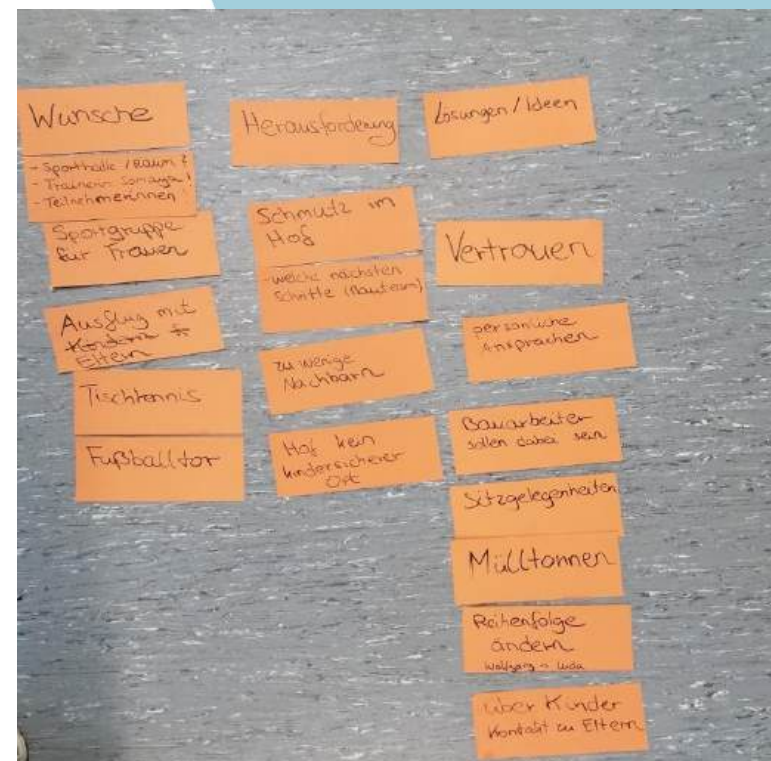 Wünsche
- Sporthalle / Raum ?
- Trainerin Somaya !
- Teilnehmerinnen
Sportgruppe
für Frauen
Ausflug mit
Kindern +
Eltern
Tischtennis
Fußballtor
Herausforderung
Schmutz im
Hof
- welche nächsten
Schritte (Bauteam)
zu wenige
Nachbarn
Hof kein
kindersicherer
Ort
Lösungen / Ideen
Vertrauen
persönliche
Ansprachen
Bauarbeiter
sollen dabei sein
Sitzgelegenheiten
Mülltonnen
Reihenfolge
ändern
Wolfgang
über Kinder
Kontakt zu Eltern